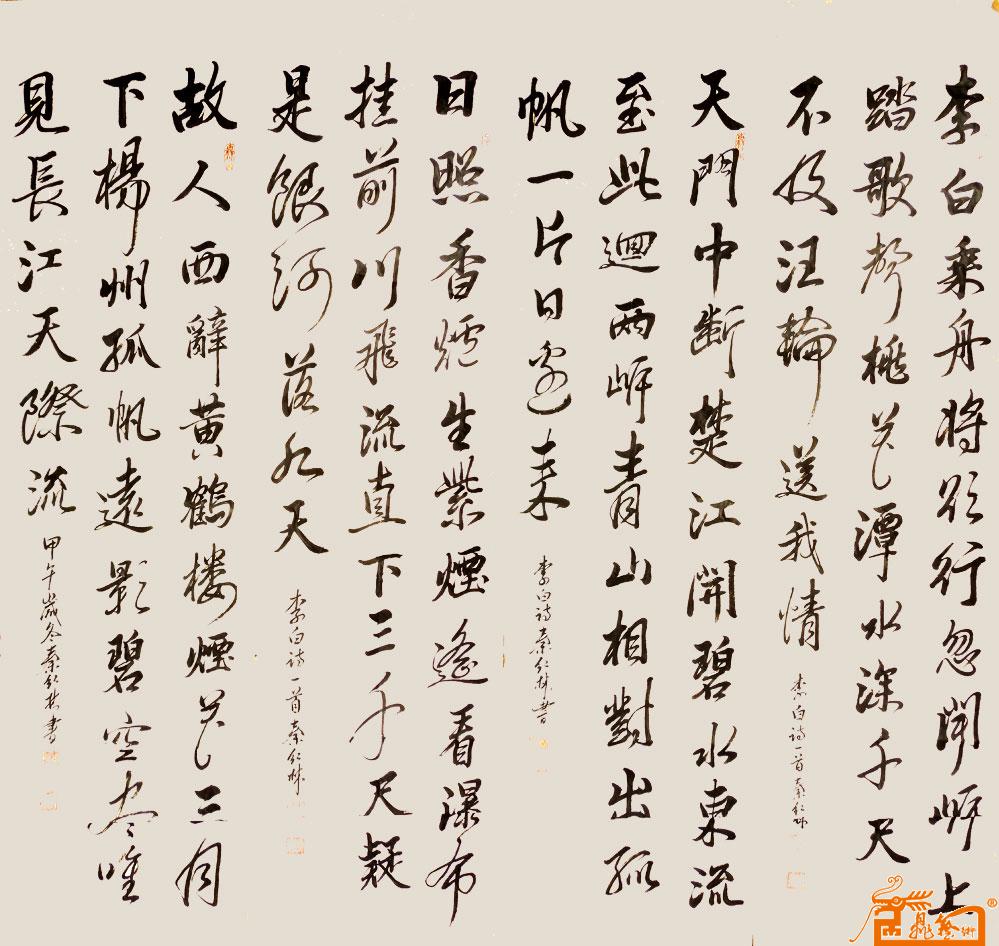 李白乘舟將欲行忽聞岸上
踏歌聲桃花潭水深千尺
不及汪輪送我情
李白诗一首秦仁林
天門中斷楚江開碧水東流
至此迴兩岸青山相對出孤
帆一片日邊来
李白诗秦仁林書
日照香爐生紫煙遙看瀑布
挂前川飛流直下三千尺疑
是銀河落九天
李白诗一首秦仁林
故人西辭黄鶴楼煙花三月
下楊州孤帆遠影碧空尽唯
見長江天際流
甲午歲冬秦仁林書